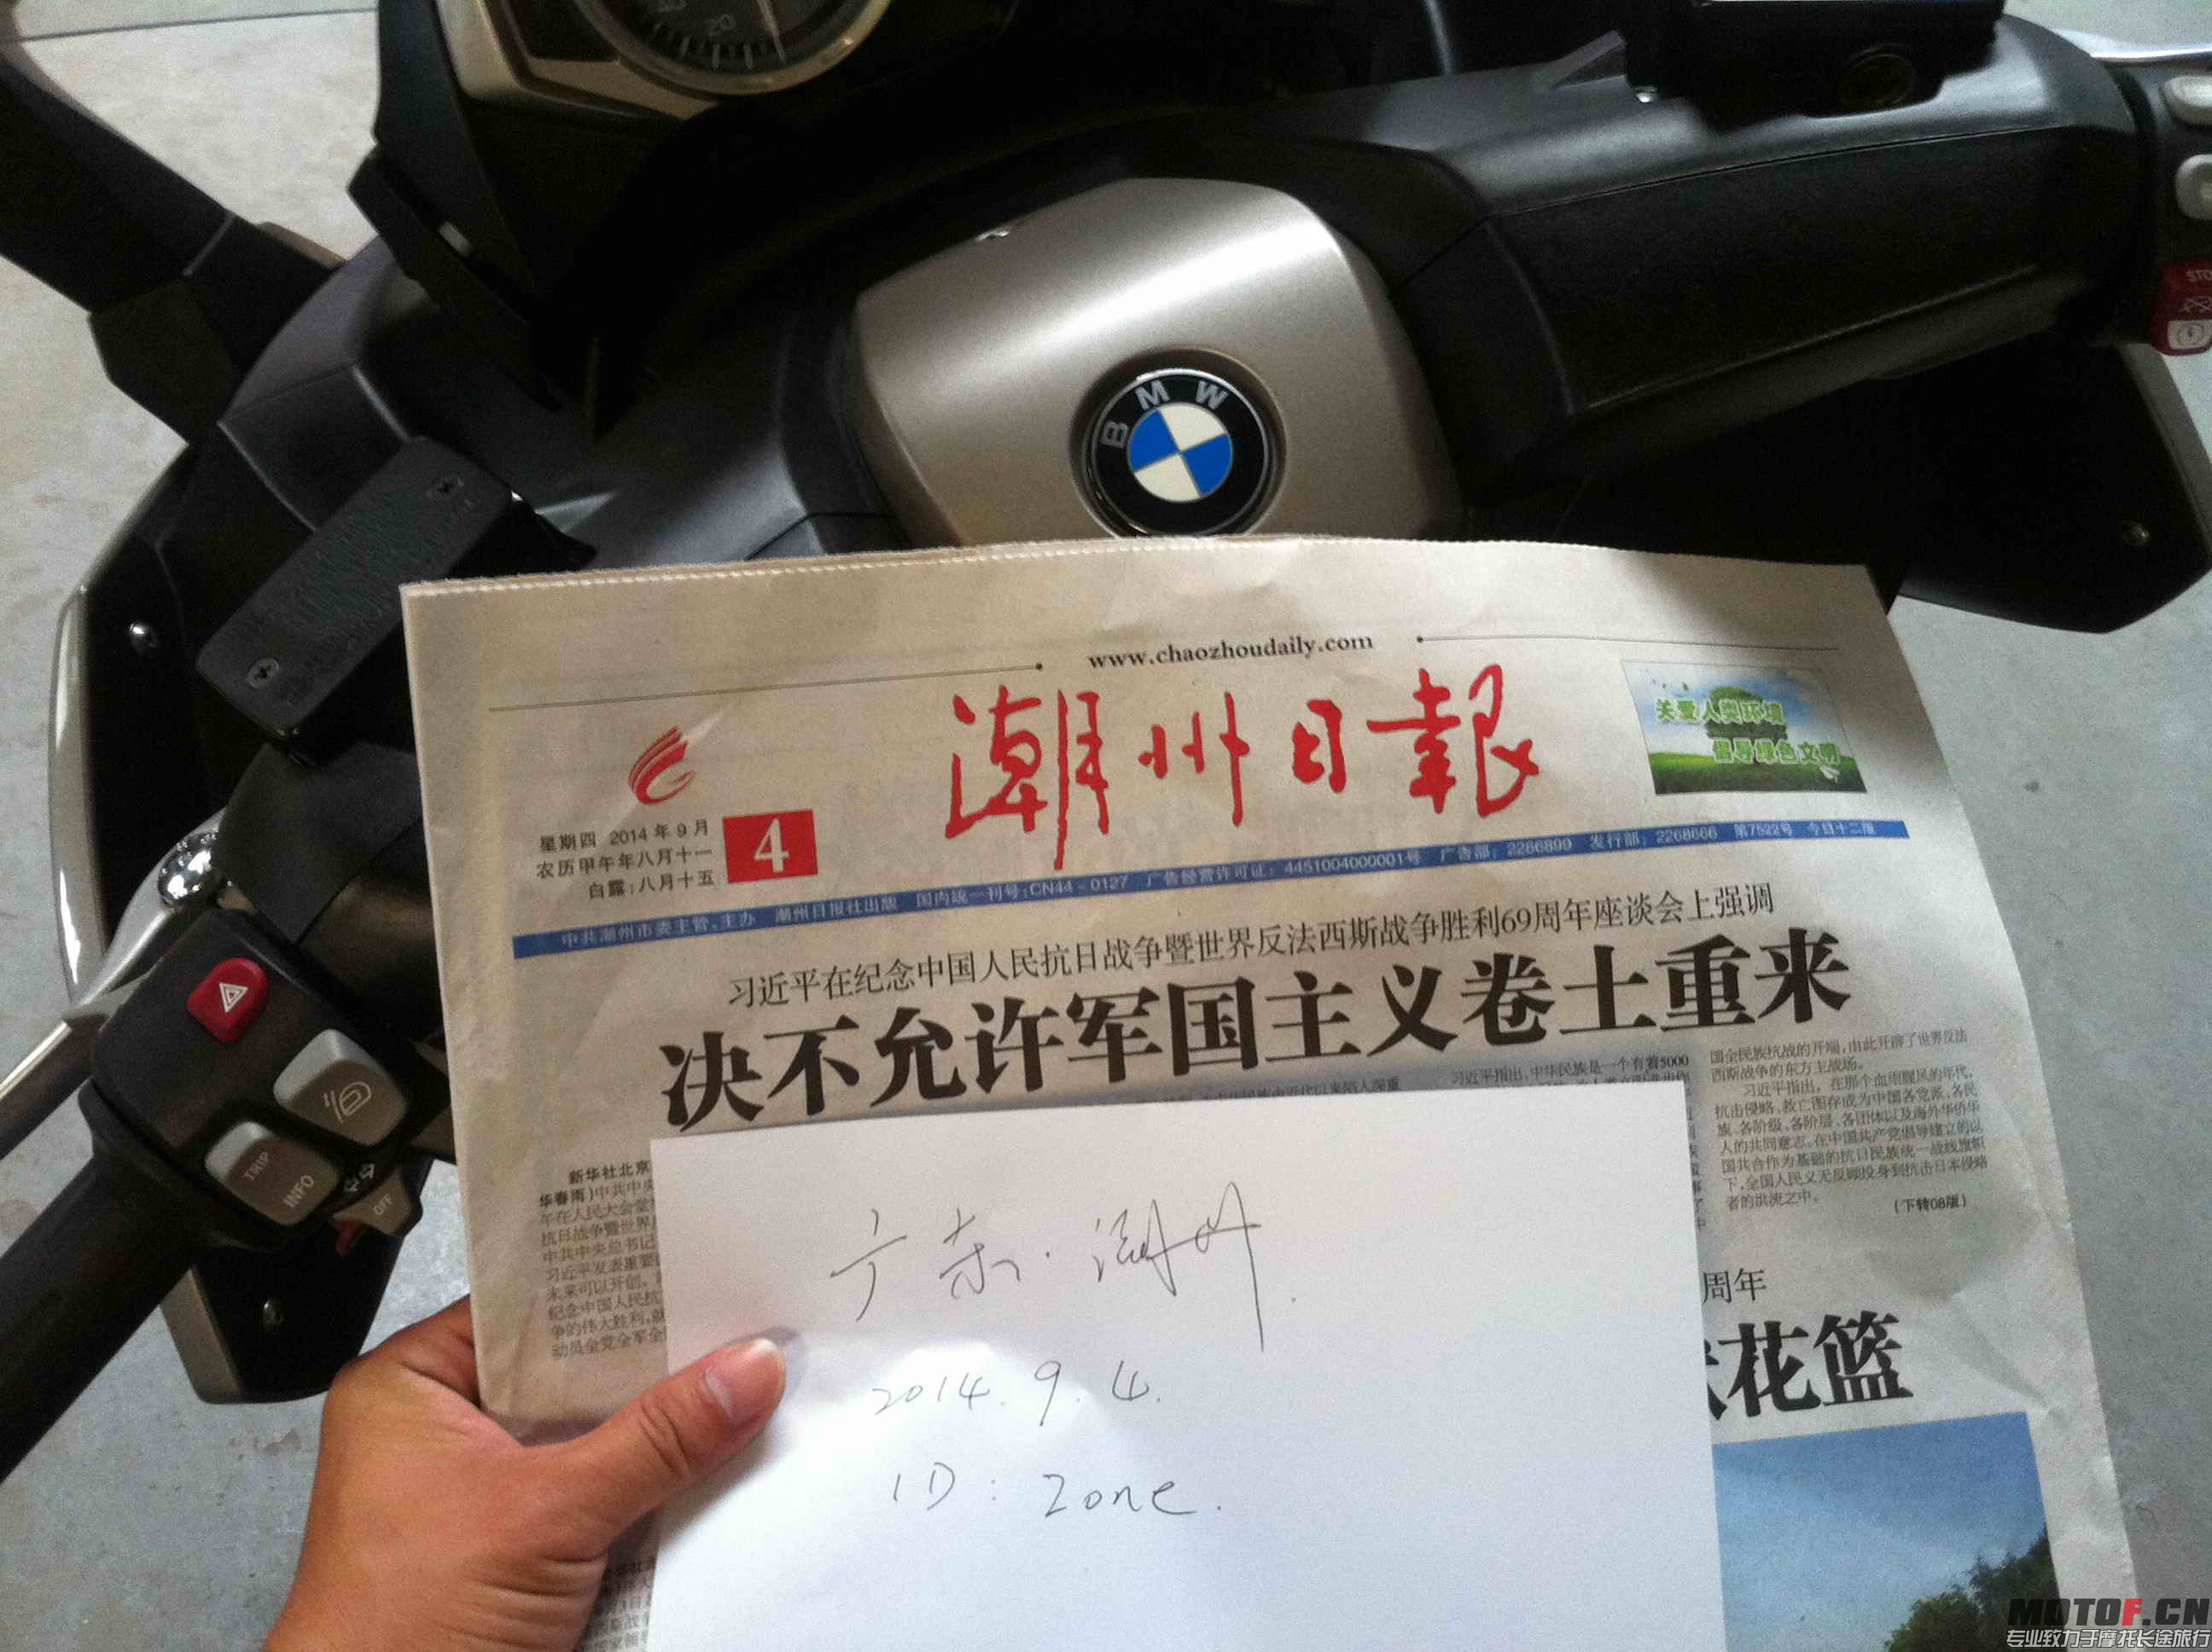 20
BMW
STO
www.chaozhoudaily.com
潮州日報
关爱人类环境
倡导绿色文明
星期四 2014年9月
农历甲午年八月十一
白露:八月十五
4
中共潮州市委主管、主办 潮州日报社出版 国内统一刊号:CN44-0127 广告经营许可证:4451004000001号 广告部:2266899 发行部:2268666 第7522号 今日十二版
习近平在纪念中国人民抗日战争暨世界反法西斯战争胜利69周年座谈会上强调
决不允许军国主义卷土重来
习近平指出,中华民族是一个有着5000
国全民族抗战的开端,由此开辟了世界反法
西斯战争的东方主战场。
习近平指出,在那个血雨腥风的年代,
抗击侵略、救亡图存成为中国各党派、各民
族、各阶级、各阶层、各团体以及海外华侨华
人的共同意志。在中国共产党倡导建立的以
国共合作为基础的抗日民族统一战线旗帜
下,全国人民义无反顾投身到抗击日本侵略
者的洪流之中。
(下转08版)
新华社北京
华春雨)中共中央
午在人民大会堂
抗日战争暨世界
中共中央总书记
习近平发表重要
未来可以开创。
纪念中国人民抗
争的伟大胜利,就
动员全党全军全
周年
花篮
TRIP
INFO
OFF
广东·潮州.
2014.9.4.
ID: Zone.
MOTOF.CN
专业致力于摩托长途旅行